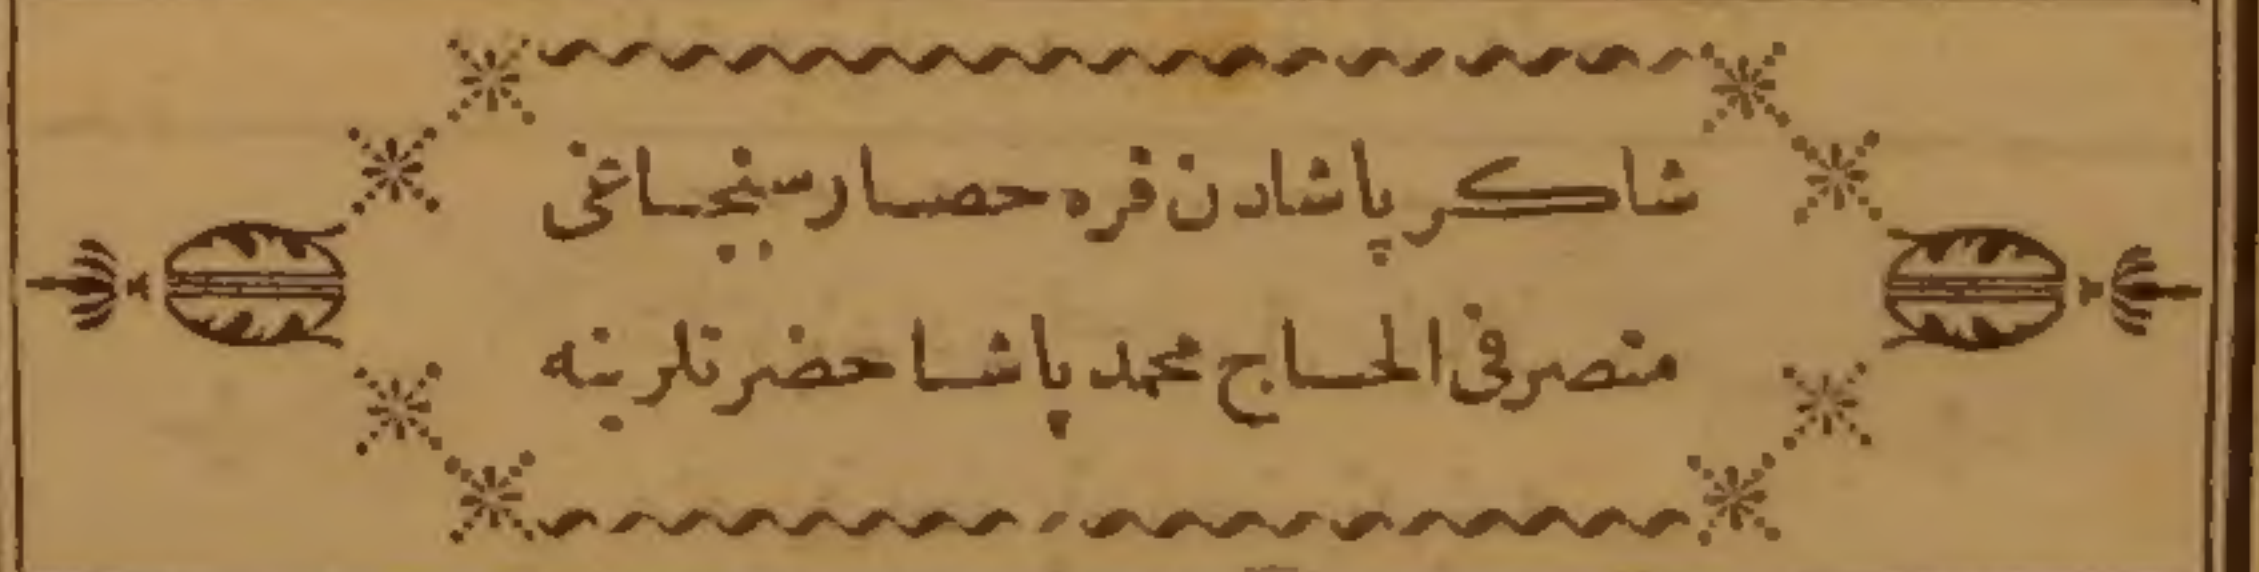 شاكر پاشادن قره حصار سنجاغى
متصرفى الحاج محمد پاشا حضرتلرينه